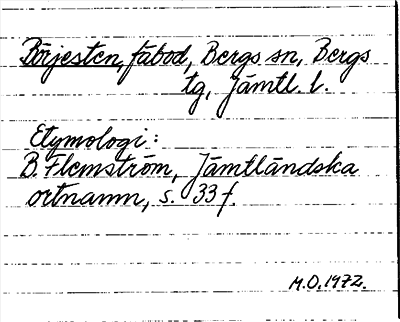 Börjesten, fäbod, Bergs sn, Bergs
tg, Jämtl. l.
Etymologi:
B. Flemström, Jämtländska
ortnamn, s. 33 f.
M.O. 1972.